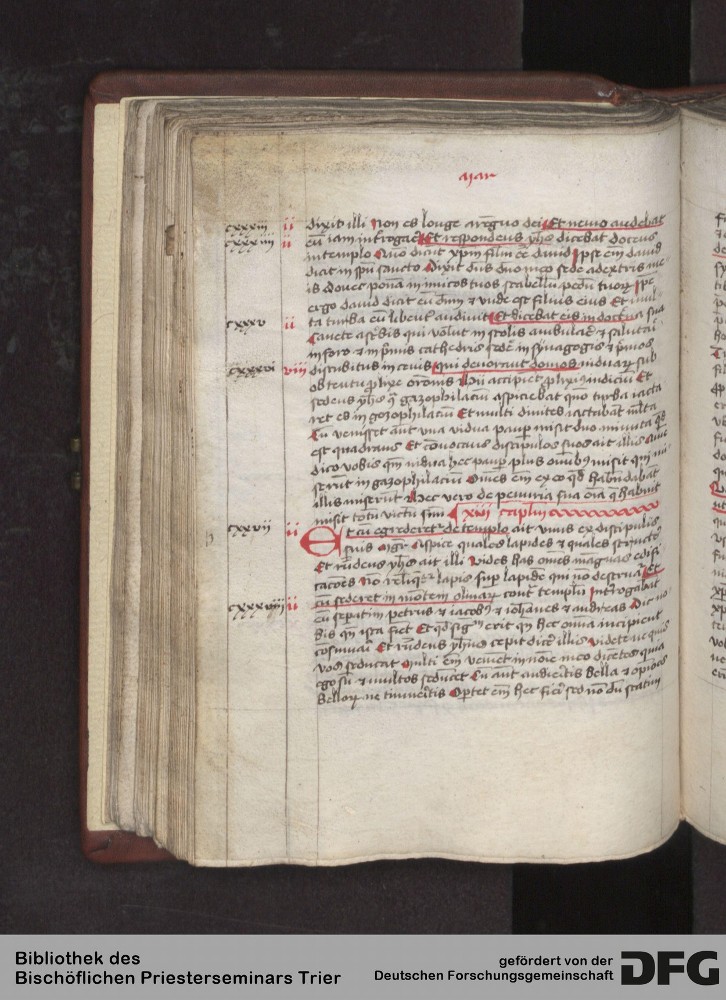 Mar
cxxxiii ii dixit illi Non es longe a regno dei Et nemo audebat
cxxxiiii ii eū iam introgare Et respondens yhs dicebat docens
in templo Quo dicūt xpm filiū eē dauid Ipse em̄ dauid
dicit in spū sancto Dixit dn̄s dno meo sede a dextris me
is donec ponā inimicos tuos scabellū pedū tuoꝝ Ipē
ergo dauid dicit eū dnm̄ et vnde est filius eius Et mul
cxxxv ii ta turba eū libenter audiuit Et dicebat eis in doctrīa sua
Cauete a scribis qui volūt in stolis ambulare et salutari
in foro et in primis cathedris sedere in synagogis et primos
cxxxvi viii discubitus in cenis qui deuorant domos viduaꝝ sub
obtentu prolixe orōnis Hii accipiet prolixius iudiciū Et
sedens yhs gazophilaciū aspiciebat quo turba iacta
ret es in gazophilaciū Et multi diuites iactabāt multa
Cū venisset aūt vna vidua paup misit duo minuta qd
est quadrans Et cōuocans discipulos suos ait illis Amē
dico vobis qm̄ vidua hec paup plus omībus misit qui mi
serūt in gazophilaciū Omēs em̄ ex eo qd habūdabāt
illis miserūt Hec vero de penuria sua oīa que habuit
misit totū victū suū xiii caplm
cxxvii ii Et cū egrederetur de templo ait vnus ex discipulis
suis Mgr Aspice quales lapides et quales structure
Et rn̄dens yhs ait illi vides has omēs magnas edifi
cacōes No relinquetur lapis sup lapidē qui nō destruat Et
cxxxviii ii cū sederet in mōtem oliuarꝝ contra templū Introgabāt
eū sepatim petrus et iacobus et iohānes et andreas Dic no
bis qn̄ ista fiēt Et qd signū erit qn̄ hec omīa incipient
cōsumari Et rn̄dens yhesus cepit dicere illis videte ne quis
vos seducat Multi em̄ veniēt in noīe meo dicētes quia
ego sū et multos seducēt Cū aūt audieritis bella et opiōes
belloꝝ ne timueritis Oportet em̄ hec fieri sed nō dū statim
Bibliothek des
Bischöflichen Priesterseminars Trier
gefördert von der
Deutschen Forschungsgemeinschaft
DFG